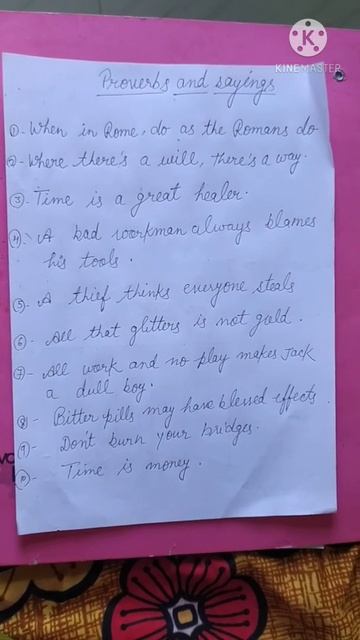 KINEMASTER
Proverbs and sayings
①- When in Rome, do as the Romans do
②- Where there's a will, there's a way.
③- Time is a great healer.
④- A bad workman always blames
his tools.
⑤- A thief thinks everyone steals
⑥- All that glitters is not gold.
⑦- All work and no play makes Jack
a dull boy.
⑧- Bitter pills may have blessed effects.
⑨- Don't burn your bridges.
⑩- Time is money.